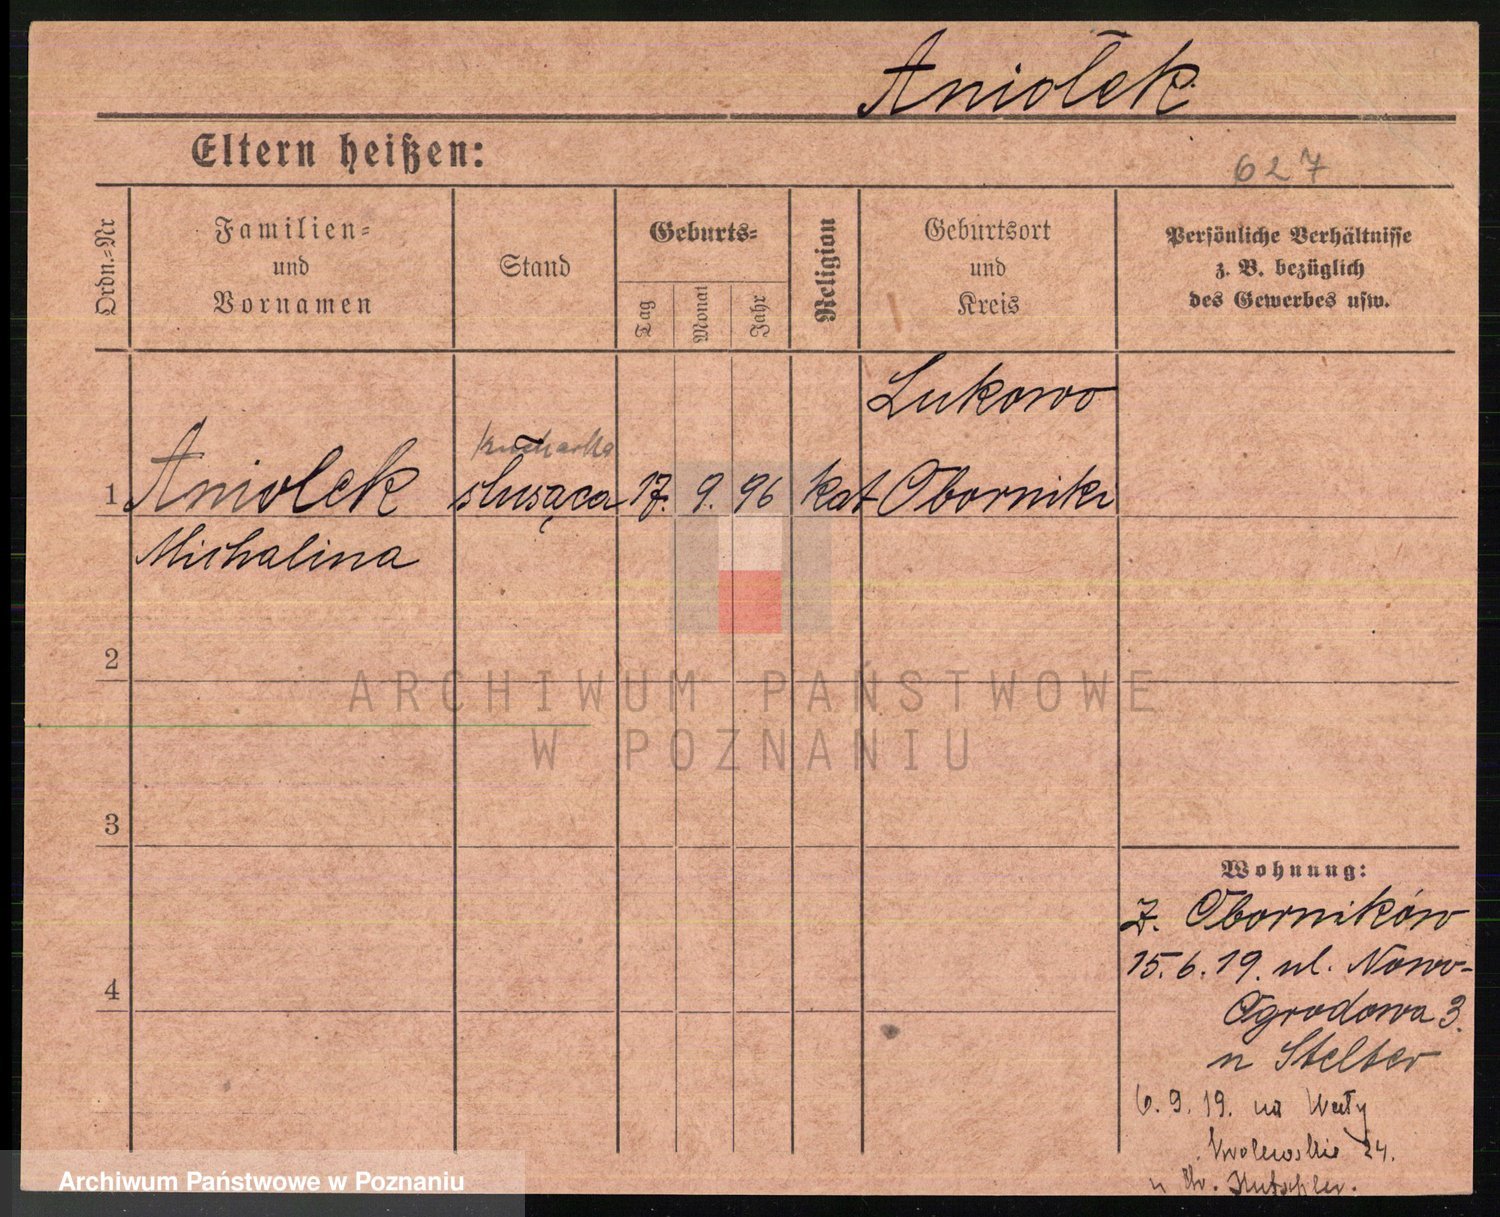 Aniołek
Eltern heißen:
627
Ordn.-Nr
Familien-
und
Vornamen
Stand
Geburts-
Tag
Monat
Jahr
Religion
Geburtsort
und
Kreis
Persönliche Verhältnisse
z. B. bezüglich
des Gewerbes usw.
Lukowo
kucharka
1 Aniolek slusąca 17. 9. 96 kat Oborniki
Michalina
2
ARCHIWUM PAŃSTWOWE
W POZNANIU
3
Wohnung:
Z. Oborników
15.6.19. ul. Nowo-
4
Ogrodowa 3.
u Stelter
6.9.19. na Wały
Królewskie 24.
u
Archiwum Państwowe w Poznaniu